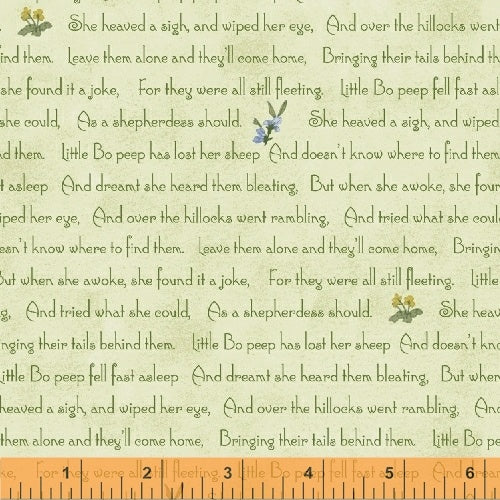 She heaved a sigh, and wiped her eye, And over the hillocks went
find them. Leave them alone and they'll come home, Bringing their tails behind th
she found it a joke, For they were all still fleeting. Little Bo peep fell fast as
she could, As a shepherdess should. She heaved a sigh, and wiped
nd them. Little Bo peep has lost her sheep And doesn't know where to find them
t asleep And dreamt she heard them bleating, But when she awoke, she foun
iped her eye, And over the hillocks went rambling, And tried what she coul
esn't know where to find them. Leave them alone and they'll come home, Bringin
But when she awoke, she found it a joke, For they were all still fleeting. Little
g, And tried what she could, As a shepherdess should. She heav
nging their tails behind them. Little Bo peep has lost her sheep And doesn't kno
Little Bo peep fell fast asleep And dreamt she heard them bleating, But wher
heaved a sigh, and wiped her eye, And over the hillocks went rambling, And
them alone and they'll come home, Bringing their tails behind them. Little Bo p
e, For they were all still fleeting. Little Bo peep fell fast asleep And
1 2 3 4 5 6